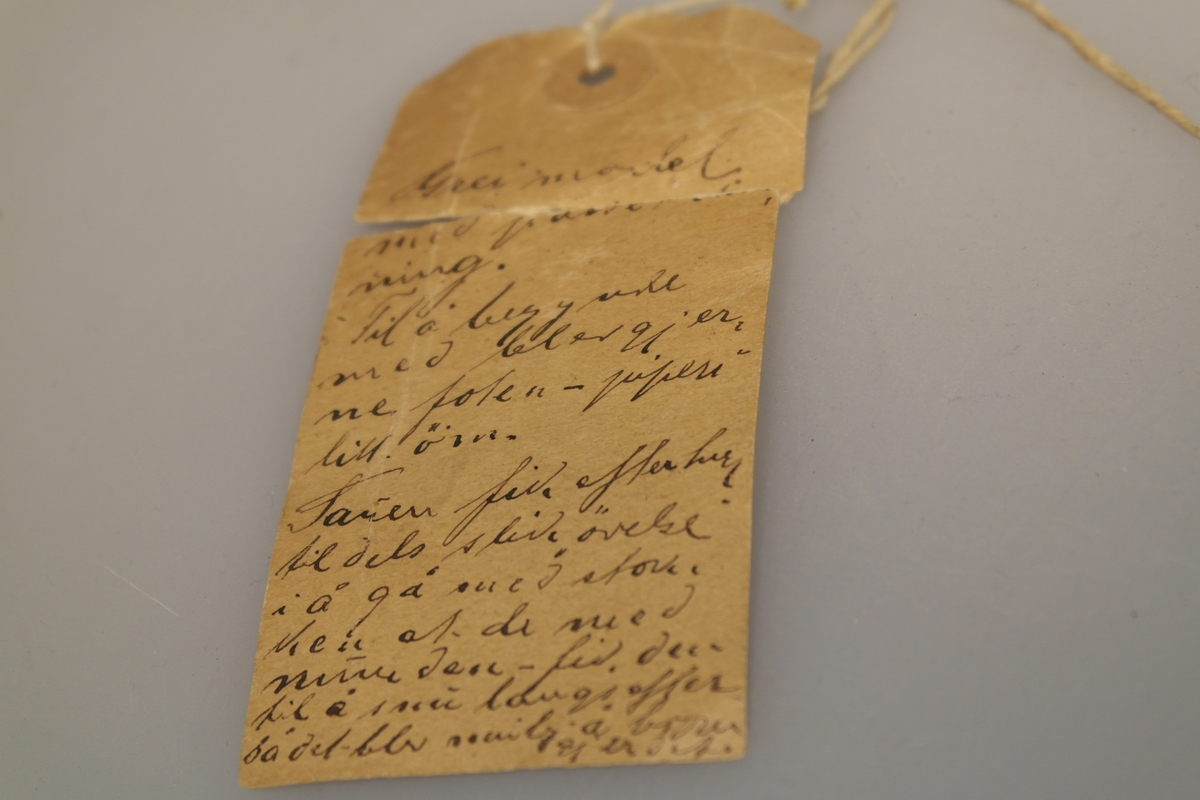 model
med
ning.
Til å begynde
med blev gjer,
ne foten - pipen
litt öm.
Sauen fik efterhv
til dels slik övelse
i å gå med stok,
ken at de med
munden - fik den
til å snu langs efter
så det blev mulig å